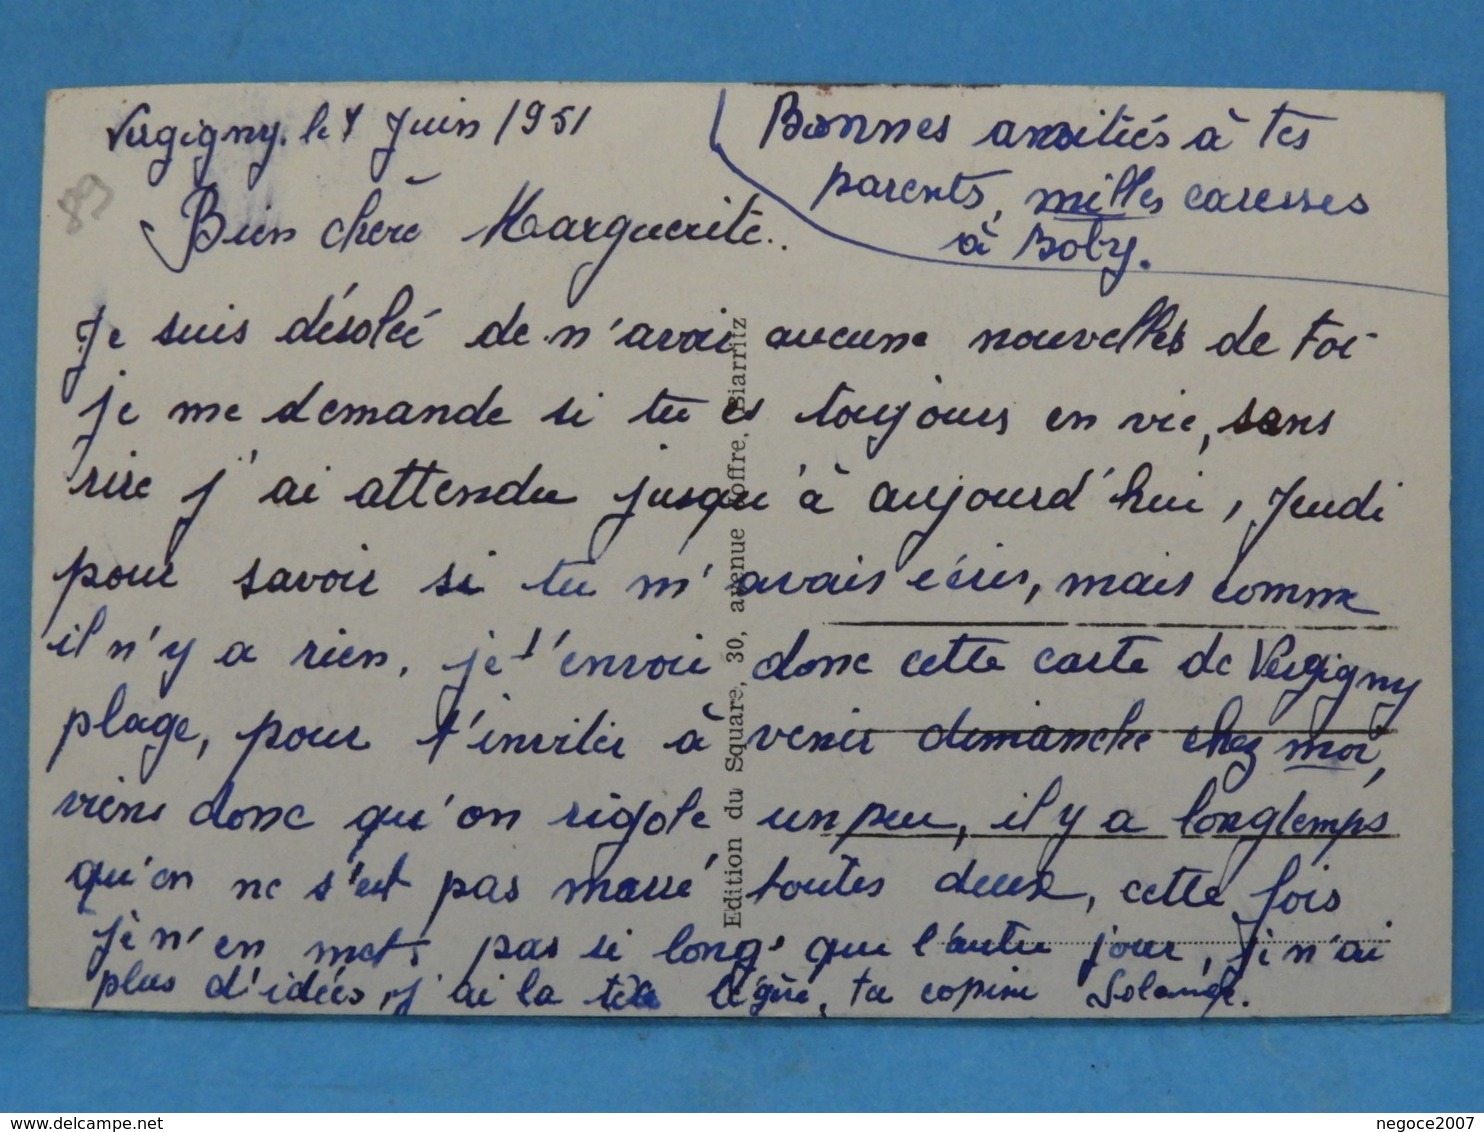 Vergigny. le 7 Juin 1951
Bonnes amitiés à tes
parents, milles caresses
à Boby.
89
Bien chère Marguerite..
Je suis désolée de n'avoir aucune nouvelles de toi
je me demande si tu es toujours en vie, sans
rire j'ai attendu jusqu'à aujourd'hui, Jeudi
pour savoir si tu m'avais écris, mais comme
il n'y a rien, je t'envoie donc cette carte de Vergigny
plage, pour t'inviter à venir dimanche chez moi,
viens donc qu'on rigole un peu, il y a longtemps
qu'on ne s'est pas marré toutes deux, cette fois
je n'en mets pas si long que l'autre jour, je n'ai
plus d'idées, j'ai la tête légère, ta copine Solange.
Edition du Square, 30, avenue Joffre, Biarritz
negoce2007